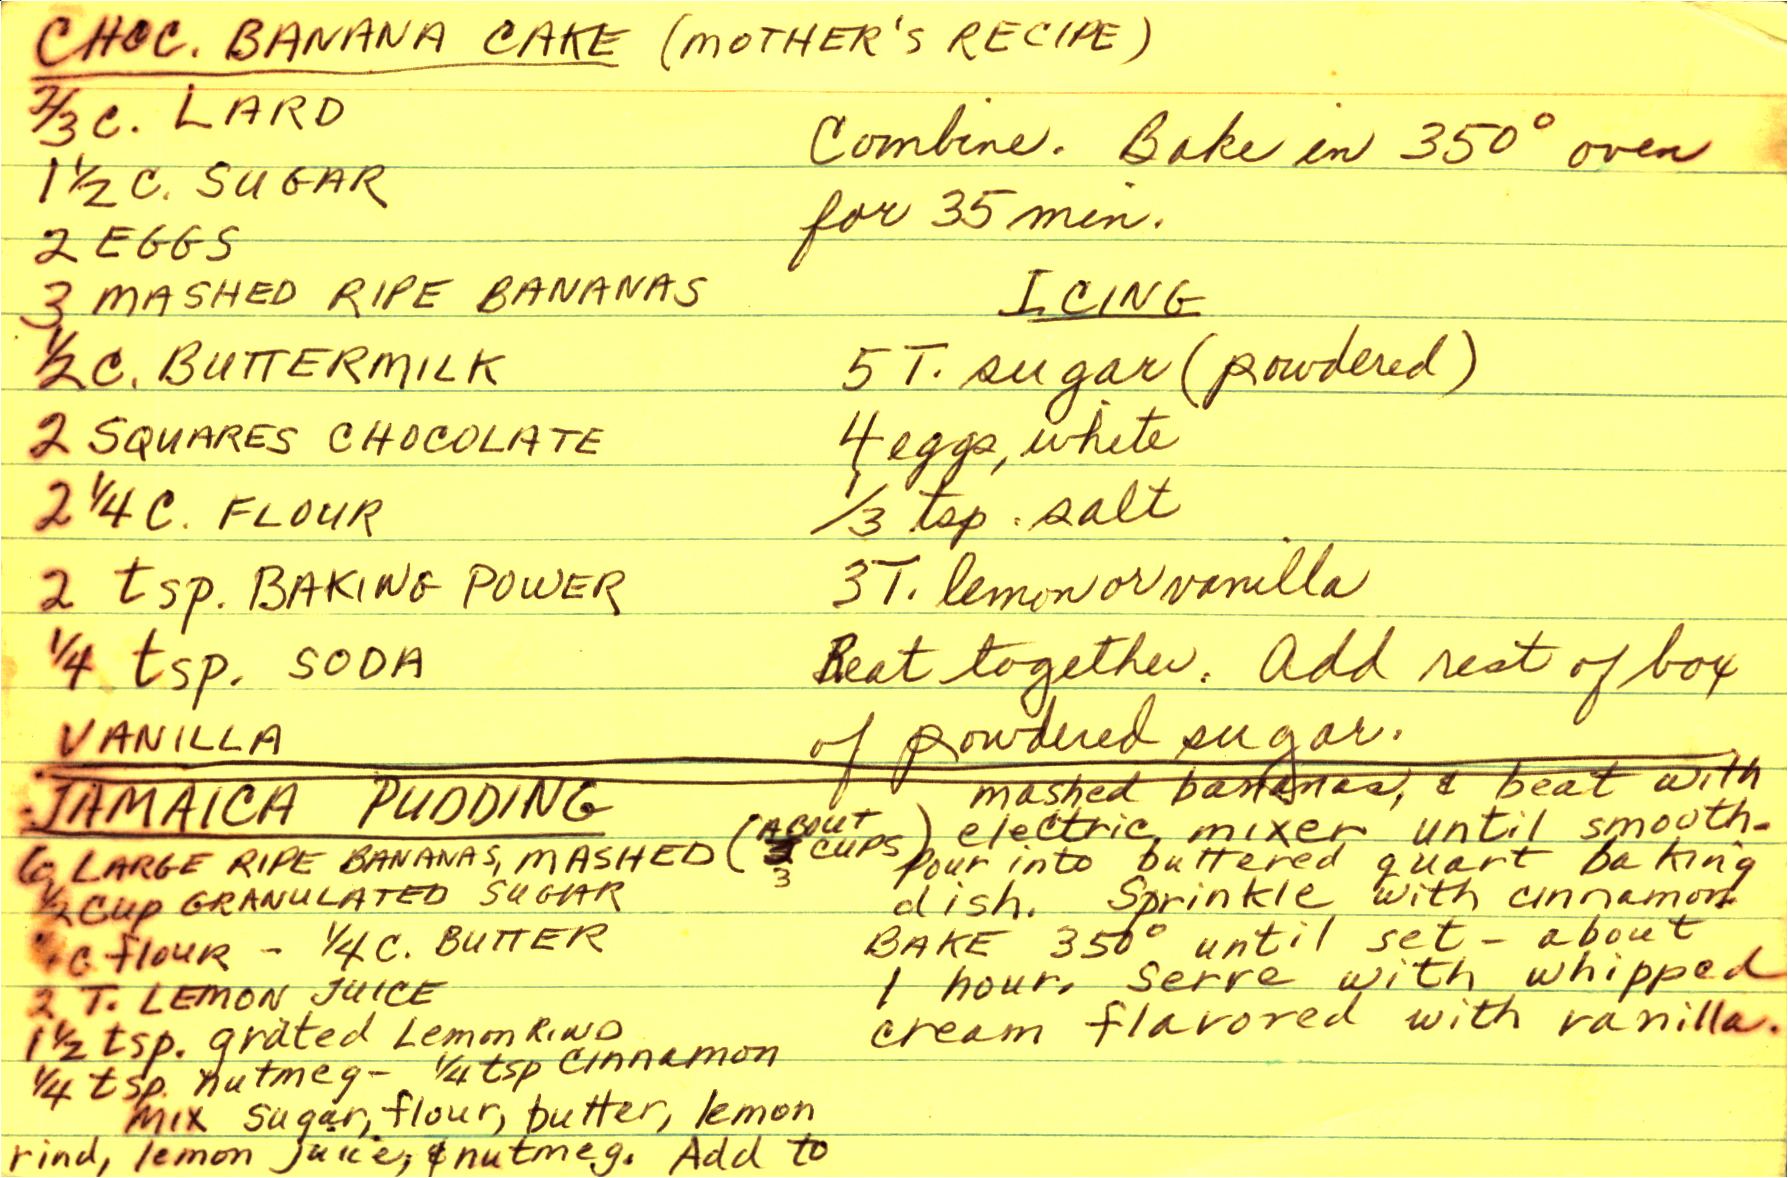 CHOC. BANANA CAKE (MOTHER'S RECIPE)
2/3 C. LARD
1 1/2 C. SUGAR
2 EGGS
3 MASHED RIPE BANANAS
1/2 C. BUTTERMILK
2 SQUARES CHOCOLATE
2 1/4 C. FLOUR
2 tsp. BAKING POWER
1/4 tsp. SODA
VANILLA
Combine. Bake in 350° oven
for 35 min.
ICING
5 T. sugar (powdered)
4 eggs, white
1/3 tsp. salt
3 T. lemon or vanilla
Beat together. Add rest of box
of powdered sugar.
JAMAICA PUDDING
6 LARGE RIPE BANANAS, MASHED (ABOUT 3 CUPS)
1/2 cup GRANULATED SUGAR
C flour - 1/4 C. BUTTER
2 T. LEMON JUICE
1 1/2 tsp. grated Lemon RIND
1/4 tsp. nutmeg - 1/4 tsp cinnamon
MIX sugar, flour, butter, lemon
rind, lemon juice, & nutmeg. Add to
mashed bananas, & beat with
electric mixer until smooth.
Pour into buttered quart baking
dish. Sprinkle with cinnamon.
BAKE 350° until set - about
1 hour. Serve with whipped
cream flavored with vanilla.